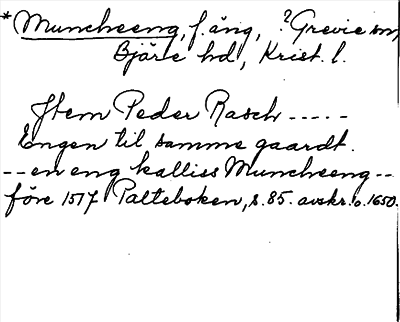 * Muncheeng, f. äng, ? Grevie sn,
Bjäre hd, Krist. l.
Jtem Peder Rasch -----
Engen til samme gaardt.
-- en eng kalliss Muncheeng --
före 1517 Palteboken, s. 85. avskr. o. 1650.